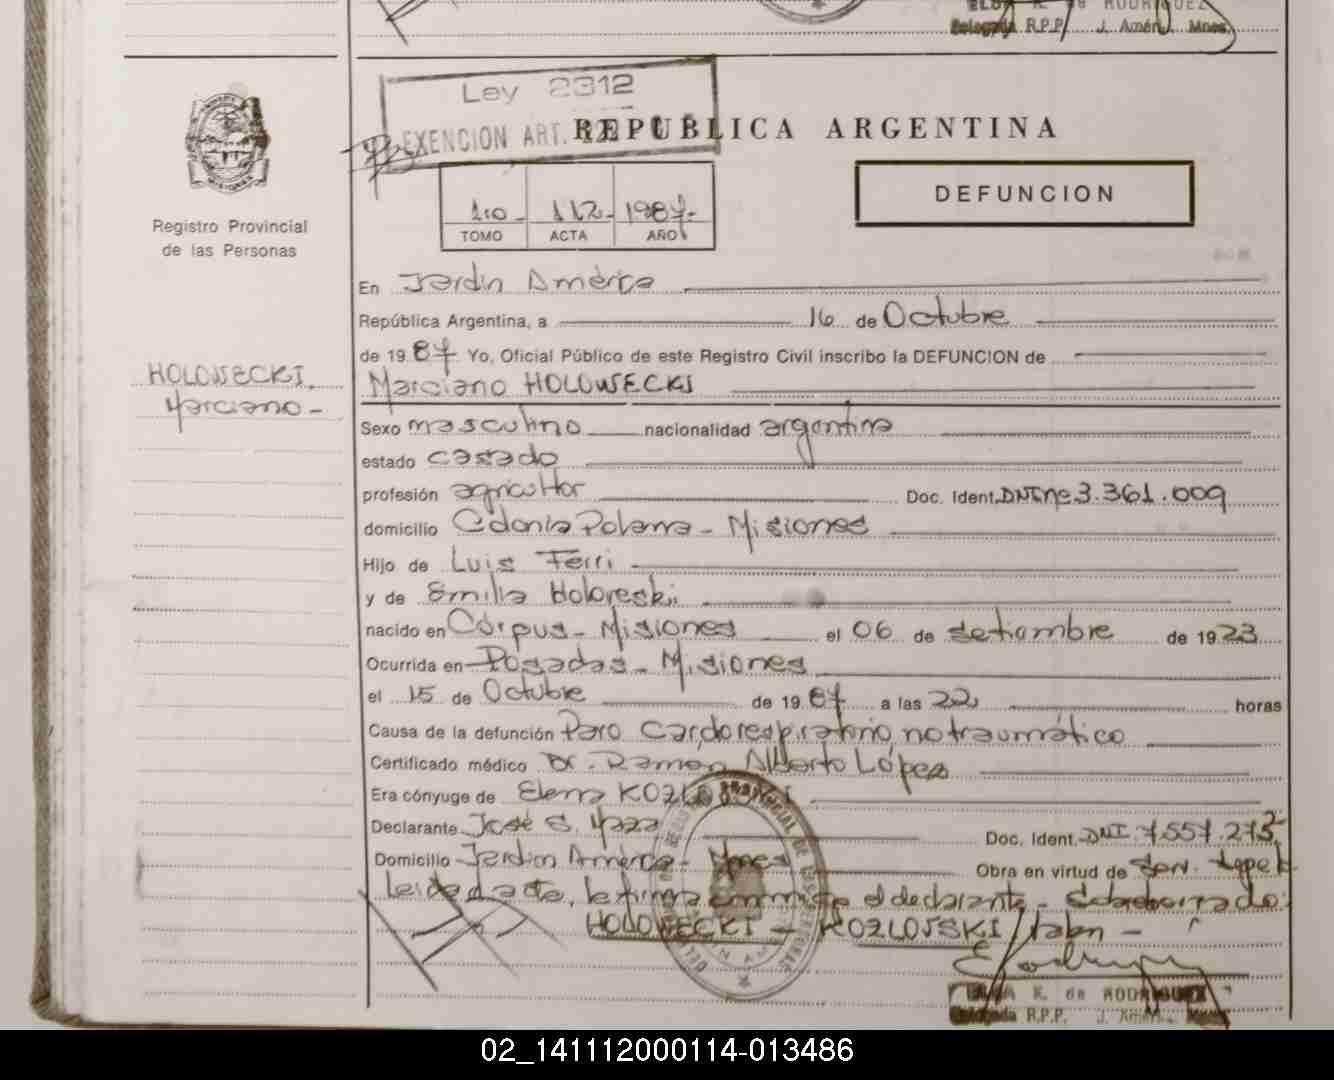 R.P.P. J. Amér. Mnes.
Ley 2312
EXENCION ART.
REPUBLICA ARGENTINA
DEFUNCION
1º - 112 - 1987 -
TOMO ACTA AÑO
Registro Provincial
de las Personas
En Jardín América
República Argentina, a 16 de Octubre
de 19 87 Yo, Oficial Público de este Registro Civil inscribo la DEFUNCION de
HOLOWECKI,
Marciano -
Marciano HOLOWECKI
Sexo masculino nacionalidad argentina
estado casado
profesión agricultor Doc. Ident. DNI nº 3.361.009
domicilio Colonia Polana - Misiones
Hijo de Luis Ferri
y de Emilia Holoreski
nacido en Corpus - Misiones el 06 de setiembre de 1923
Ocurrida en Posadas - Misiones
el 15 de Octubre de 19 87 a las 22 horas
Causa de la defunción Paro cardorespiratorio no traumático
Certificado médico Dr. Ramon Alberto López
Era cónyuge de Elena KOZLOWSKI
Declarante José S. Maza Doc. Ident. DNI. 7.557.275
Domicilio Jardín América - Mnes Obra en virtud de Serv.
Leida el acta, la firma conmigo el declarante - Sobreborrado:
HOLOWECKI - KOZLOWSKI
K. de RODRIGUEZ
Delegada R.P.P. J. Amér. Mnes
02_141112000114-013486